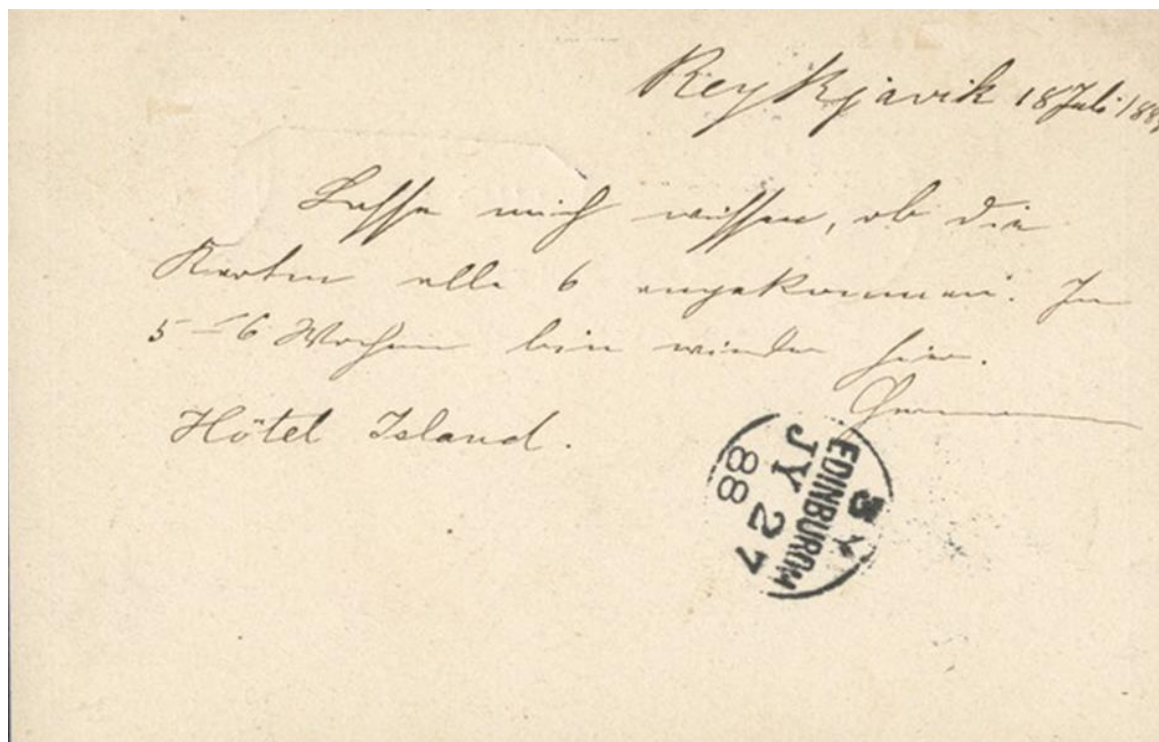 Reykjavik 18 Juli 188
Lasse mich wissen, ob die
Karten alle 6 angekommen. In
5–6 Wochen bin wieder hier.
Hôtel Island.
EDINBURGH
JY 27
88